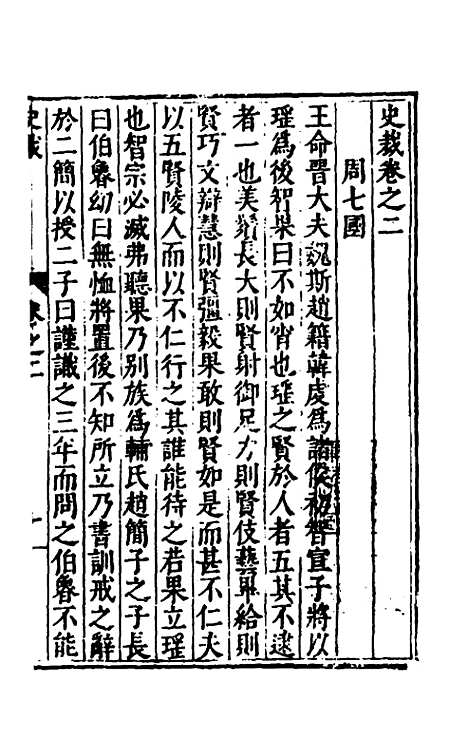 史裁卷之二
周七國
王命晉大夫魏斯趙籍韓虔爲諸侯初智宣子將以
瑤爲後智果曰不如宵也瑤之賢於人者五其不逮
者一也美鬚長大則賢射御足力則賢伎藝畢給則
賢巧文辯慧則賢彊毅果敢則賢如是而甚不仁夫
以五賢陵人而以不仁行之其誰能待之若果立瑤
也智宗必滅弗聽果乃別族爲輔氏趙簡子之子長
曰伯魯幼曰無恤將置後不知所立乃書訓戒之辭
於二簡以授二子曰謹識之三年而問之伯魯不能
史裁
卷之二
一